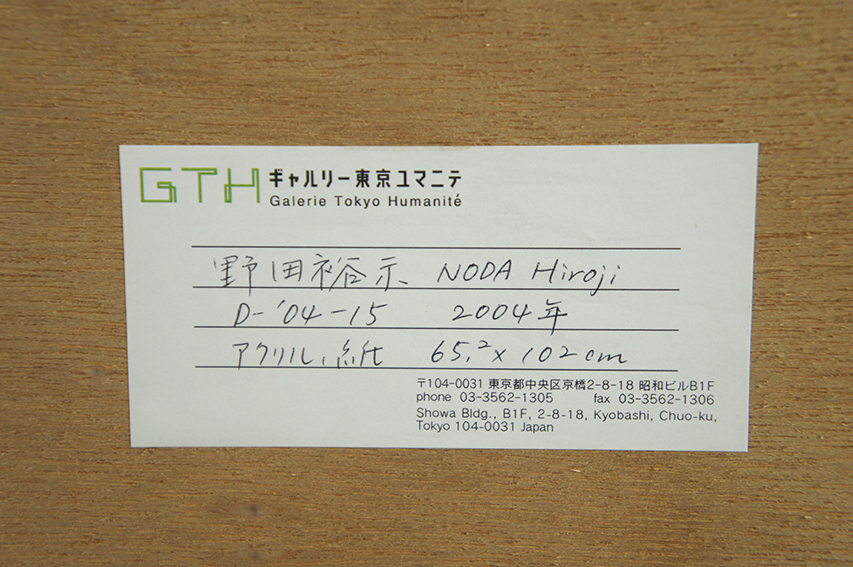 GTH ギャルリー東京ユマニテ
Galerie Tokyo Humanité
野田裕示 NODA Hiroji
D-'04-15 2004年
アクリル、紙 65.2 x 102 cm
〒104-0031 東京都中央区京橋2-8-18 昭和ビルB1F
phone 03-3562-1305 fax 03-3562-1306
Showa Bldg., B1F, 2-8-18, Kyobashi, Chuo-ku,
Tokyo 104-0031 Japan